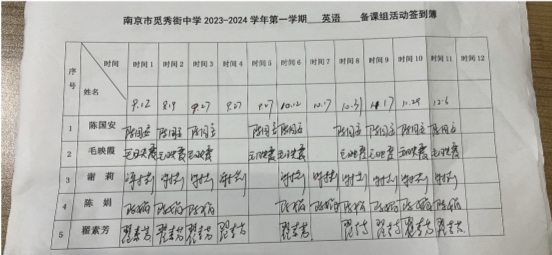 南京市觅秀街中学 2023-2024 学年第一学期 英语 备课组活动签到簿
序号 时间 姓名 时间 1 时间 2 时间 3 时间 4 时间 5 时间 6 时间 7 时间 8 时间 9 时间 10 时间 11 时间 12
9.12 9.27 9.27 10.12 11.29 12.6
1 陈国安 陈国安 陈国安 陈国安 陈国安 陈国安 陈国安 陈国安 陈国安 陈国安
2 毛映霞 毛映霞 毛映霞 毛映霞 毛映霞 毛映霞 毛映霞 毛映霞 毛映霞 毛映霞
3 谢 莉 谢莉 谢莉 谢莉 谢莉 谢莉 谢莉 谢莉 谢莉 谢莉 谢莉
4 陈 娟 陈娟 陈娟 陈娟 陈娟 陈娟 陈娟 陈娟 陈娟 陈娟
5 翟素芳 翟素芳 翟素芳 翟素芳 翟素芳 翟素芳 翟素芳 翟素芳 翟素芳